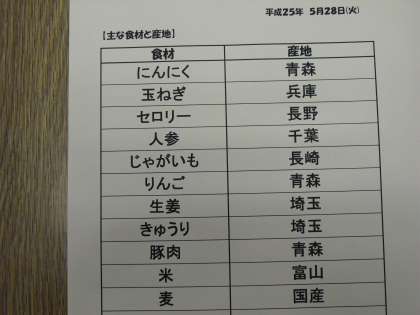 平成25年 5月28日(火)
【主な食材と産地】
食材 産地
にんにく 青森
玉ねぎ 兵庫
セロリー 長野
人参 千葉
じゃがいも 長崎
りんご 青森
生姜 埼玉
きゅうり 埼玉
豚肉 青森
米 富山
麦 国産